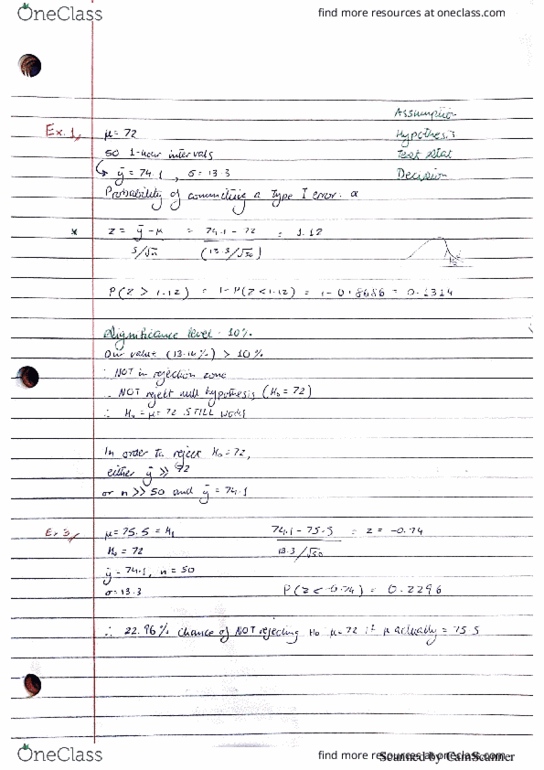 OneClass
find more resources at oneclass.com
Assumption
Ex. 1, μ = 72
Hypothesis
50 1-hour intervals
Test Stat
ȳ = 74.1, σ = 13.3
Decision
Probability of committing a Type I error: α
* z = ȳ - μ = 74.1 - 72 = 1.12
s/√n (13.3/√50)
P(Z > 1.12) = 1 - P(Z < 1.12) = 1 - 0.8686 = 0.1314
Significance level: 10%
Our value (13.14%) > 10%
∴ NOT in rejection zone
∴ NOT reject null hypothesis (H₀ = 72)
∴ H₀ = μ = 72 STILL works
In order to reject H₀ = 72,
either ȳ >> 72
or n >> 50 and ȳ = 74.1
Ex 3, μ = 75.5 = H₁ 74.1 - 75.5 = z = -0.74
H₀ = 72 13.3/√50
ȳ = 74.1, n = 50
σ = 13.3 P(Z < -0.74) = 0.2296
∴ 22.96% chance of NOT rejecting H₀ μ = 72 if μ actually = 75.5
OneClass
find more resources at oneclass.com
Scanned by CamScanner